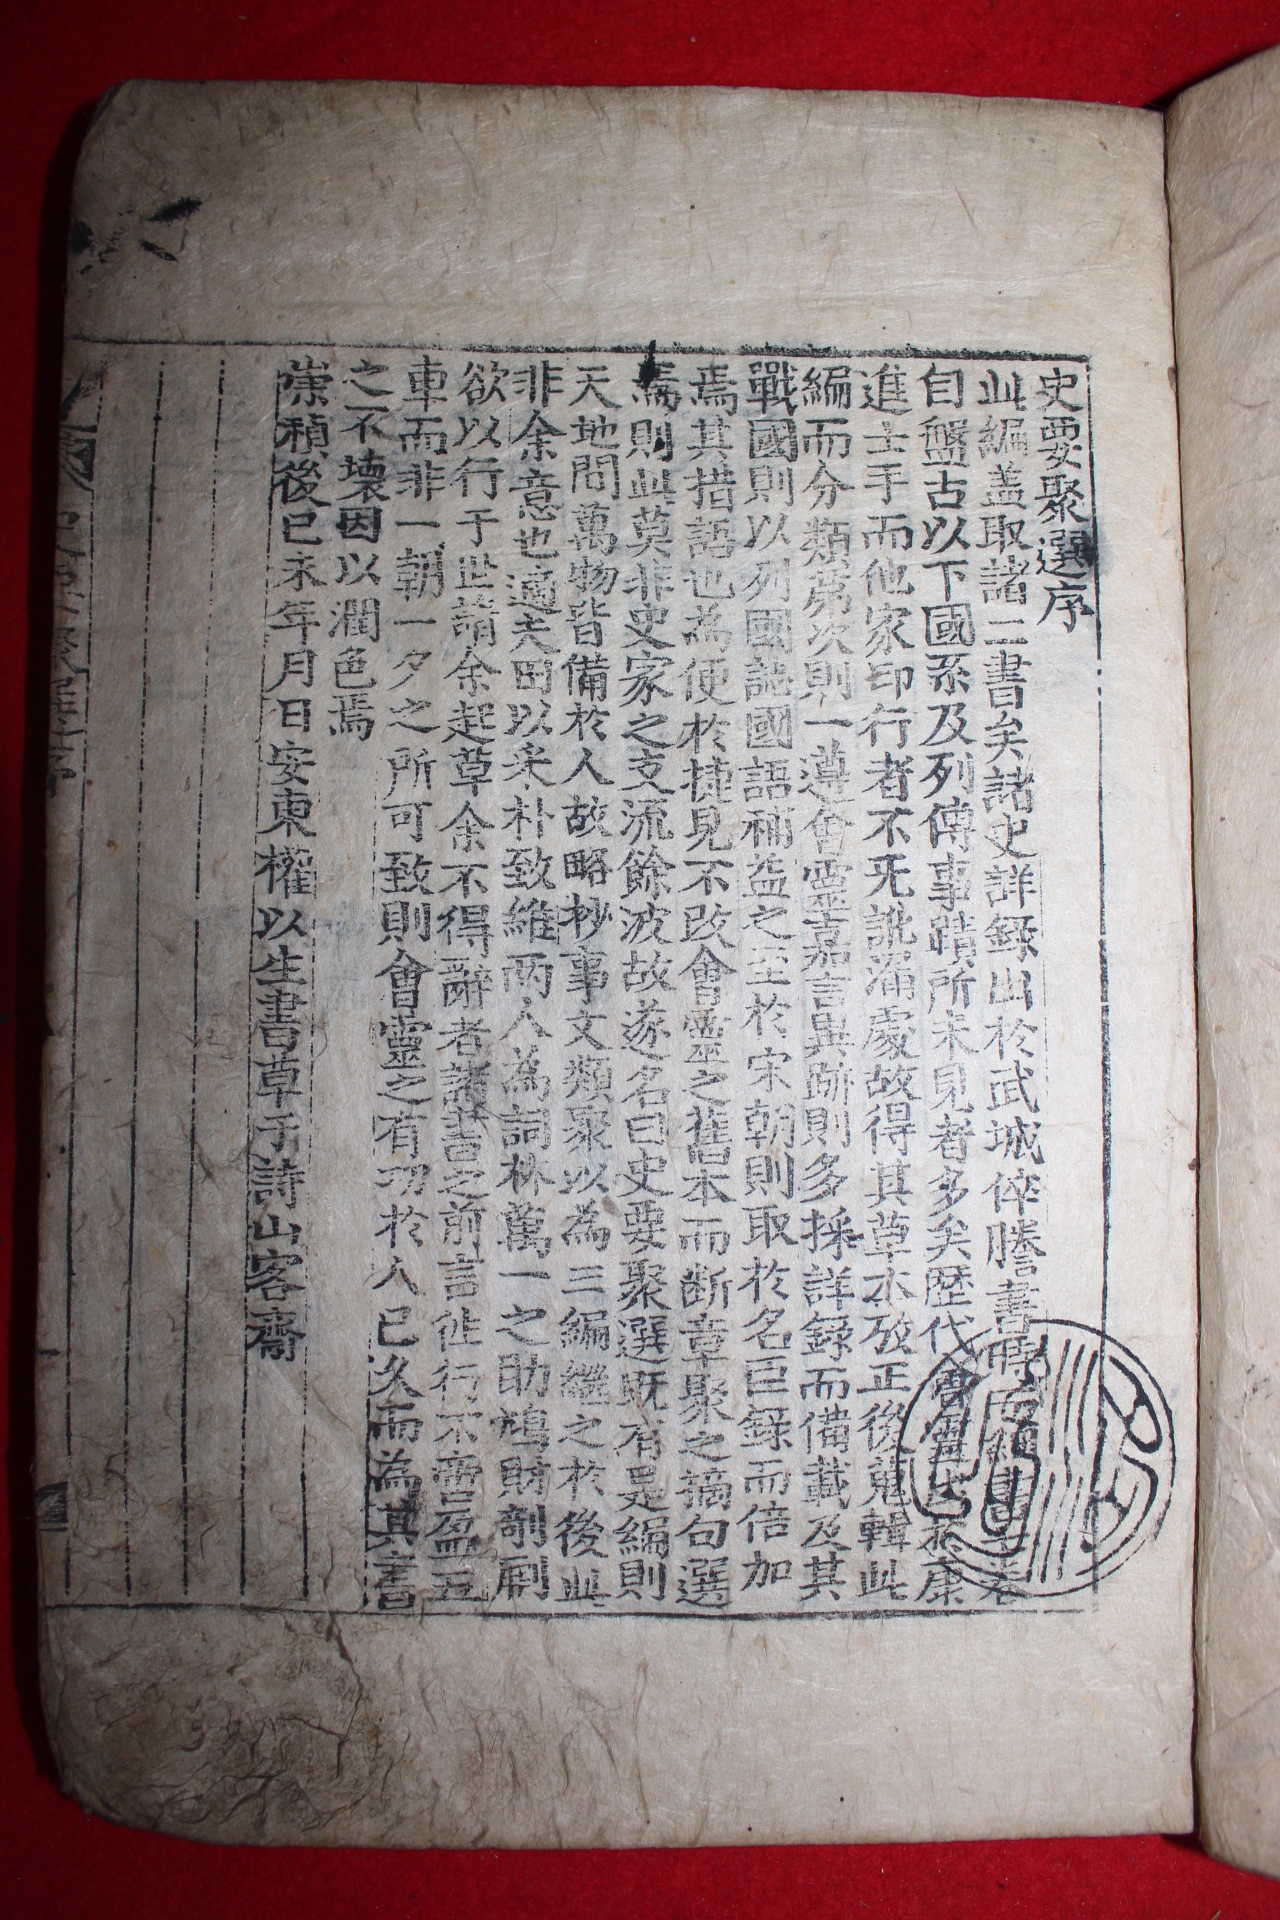 史要聚選序
此編盖取諸二書矣諸史詳錄出於武城倅謄書時而緫
自盤古以下國系及列傳事蹟所未見者多矣歷代會靈
進士手而他家印行者不旡訛漏處故得其草本攷正後蒐輯此
編而分類第次則一遵會靈嘉言異跡則多採詳錄而備載及其
戰國則以列國誌國語補益之至於宋朝則取於名臣錄而倍加
焉其措語也為便於捷見不改會靈之舊本而断章聚之摘句選
焉則此莫非史家之支流餘波故遂名曰史要聚選旣有是編則
天地間萬物皆備於人故略抄事文類聚以為三編継之於後此
非余意也適夫田以采朴致維兩人為詞林萬一之助鳩財剞劂
欲以行于世請余起草余不得辭者諸書之前言徃行不啻盈五
車而非一朝一夕之所可致則會靈之有功於人已久而為其書
之不壞因以潤色焉
崇禎後己未年月日安東權以生書草于詩山客齋